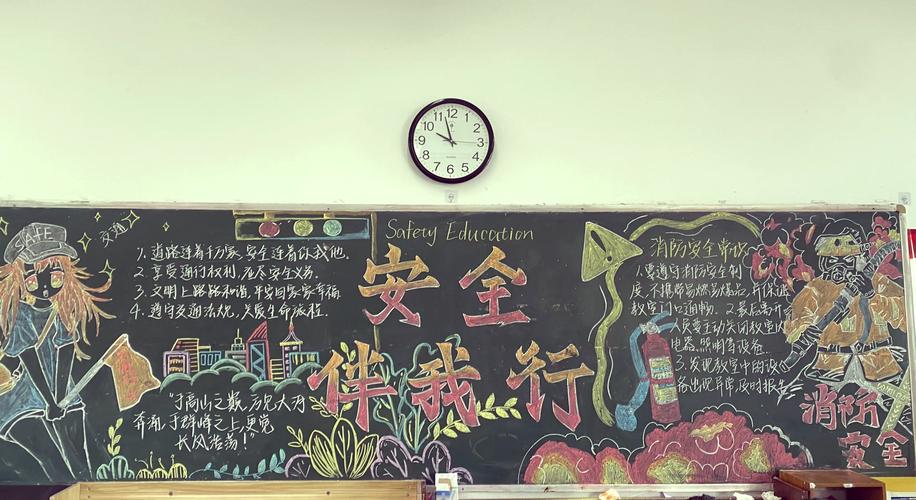 11 12 1
10 2
9 3
8 4
7 6 5
SAFE
交通
1. 道路连着千万家,安全连着你我他.
2. 享受通行权利,应尽安全义务.
3. 文明上路路和谐,平安回家家幸福
4. 遵守交通法规,关爱生命旅程.
"于高山之巅,方见大河
奔涌,于群峰之上,更觉
长风浩荡!"
Safety Education
安全
伴我行
消防安全常识
1.要遵守消防安全制
度,不携带易燃易爆品,并保证
教室门口通畅. 2.最后离开
人员要主动关闭教室
电器、照明等设备.
3.发现教室中的设
备出现异常,及时报告
消防
安全